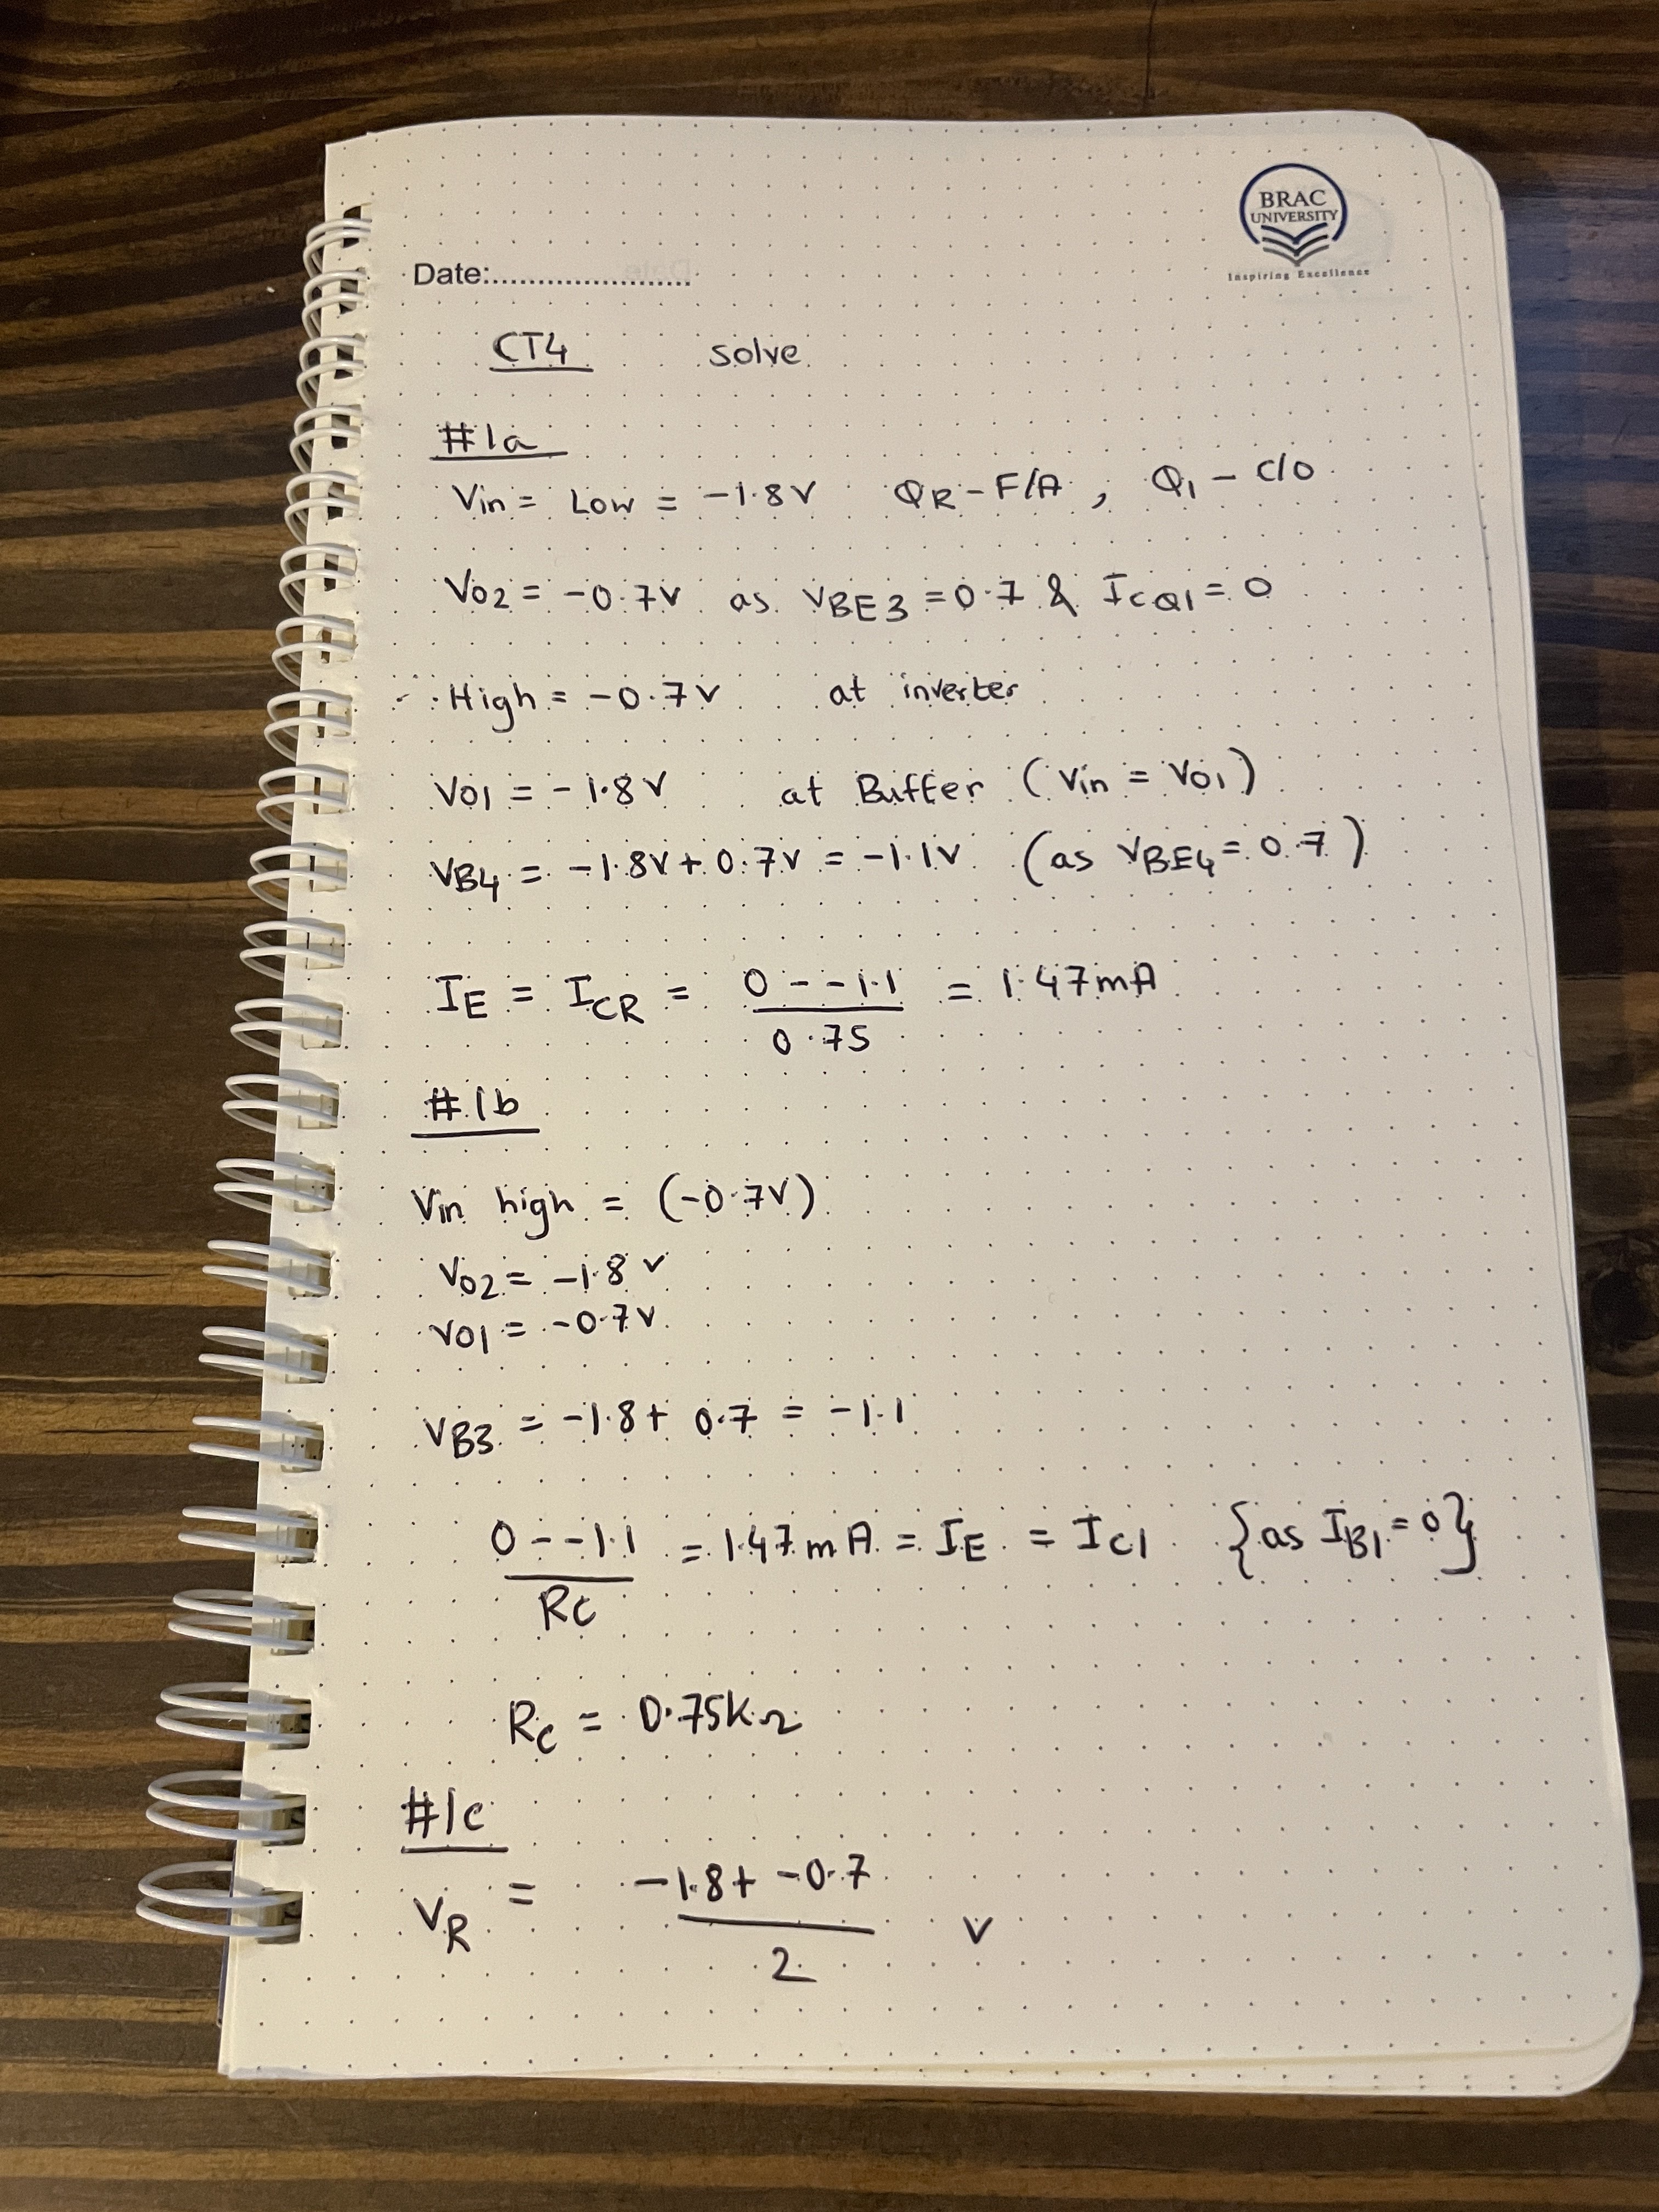 BRAC
UNIVERSITY
Inspiring Excellence
Date:........................
CT4 solve
#1a
Vin = Low = -1.8V QR - F/A , Q1 - C/O
VO2 = -0.7V as VBE3 = 0.7 & ICQ1 = 0
∴ High = -0.7V at inverter
VO1 = -1.8V at Buffer (Vin = VO1)
VB4 = -1.8V + 0.7V = -1.1V (as VBE4 = 0.7)
IE = ICR = 0 - -1.1 / 0.75 = 1.47mA
#1b
Vin high = (-0.7V)
VO2 = -1.8 V
VO1 = -0.7V
VB3 = -1.8 + 0.7 = -1.1
0 - -1.1 / RC = 1.47mA = IE = IC1 {as IB1 = 0}
RC = 0.75KΩ
#1c
VR = -1.8 + -0.7 / 2 V